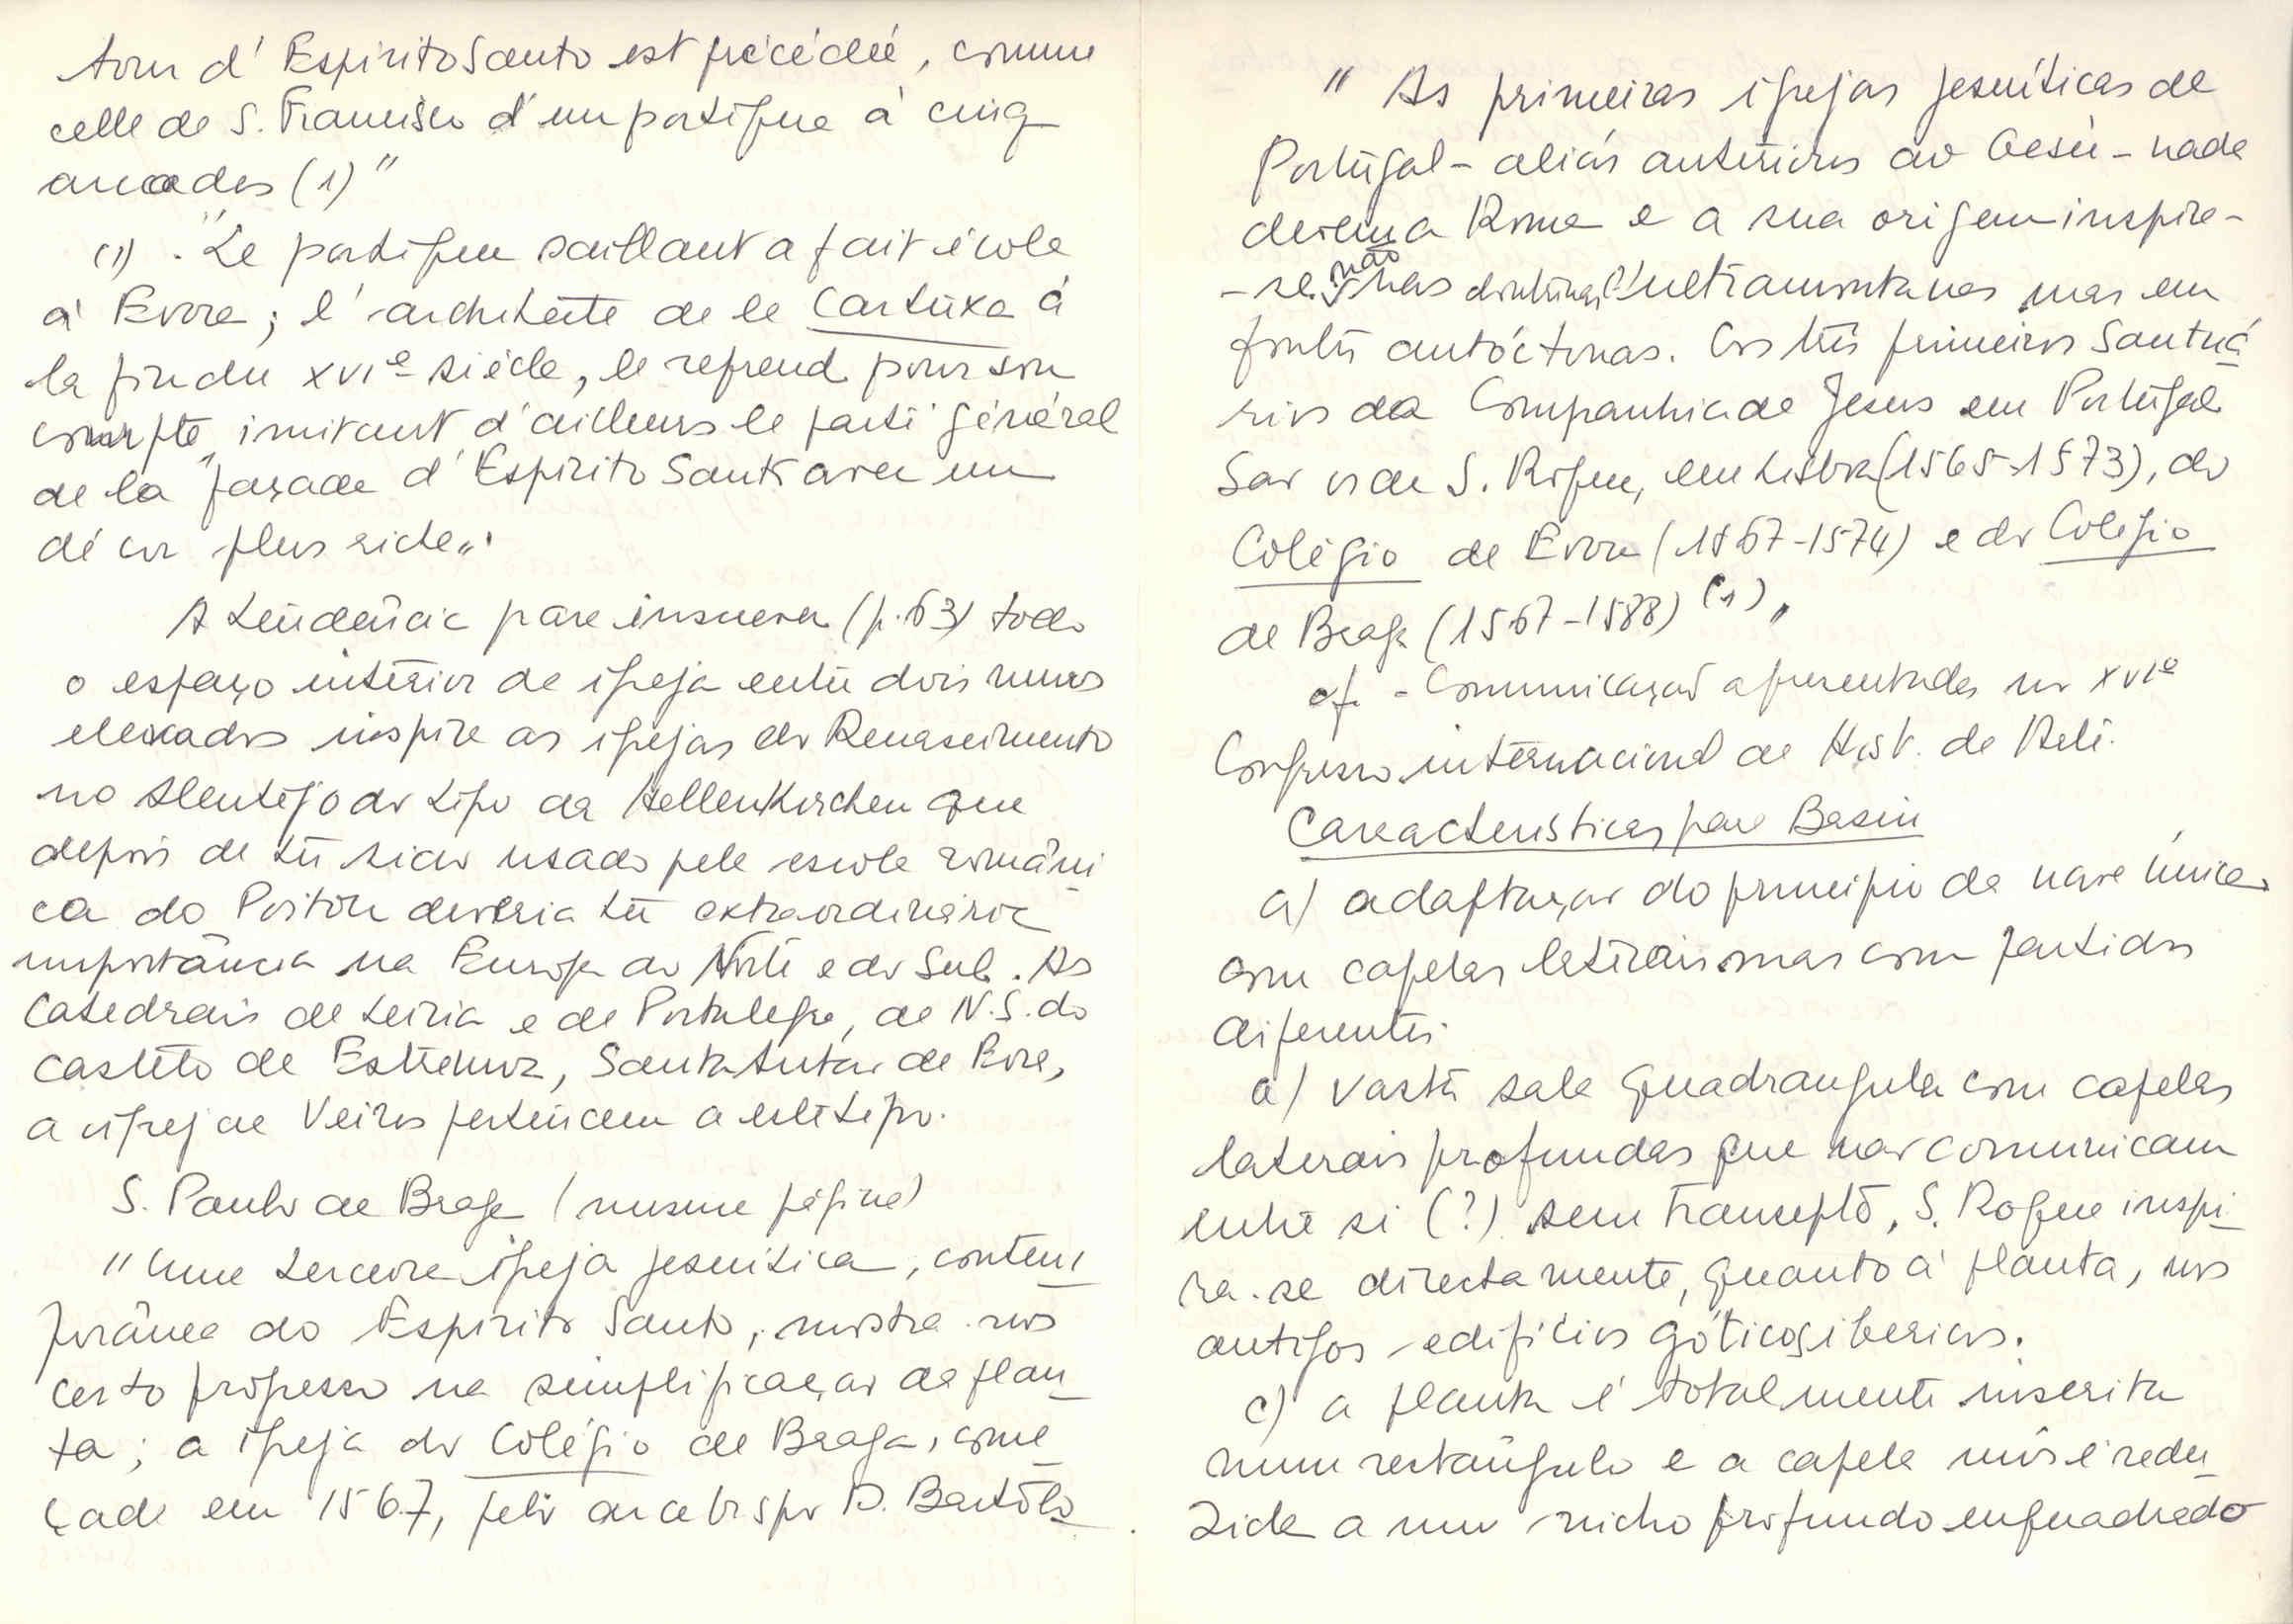 tour d'Espirito Santo est précédée, comme
celle de S. Francisco d'un portique à cinq
arcades (1)"
(1) . "Le portique saillant a fait école
à Evora; l'architecte de la Cartuxa à
la fin du XVIe siècle, le reprend pour son
compte, imitant d'ailleurs le parti général
de la façade d'Espirito Santo avec un
décor plus riche".
A tendência para inscrever (p. 63) todo
o espaço interior da igreja entre dois muros
elevados inspira as igrejas do Renascimento
no Alentejo do tipo da Hellenkirchen que
depois de ter sido usado pela escola români
ca do Poitou deveria ter extraordinária
importância na Europa do Norte e do Sul. As
Catedrais de Leiria e de Portalegre, de N. S. do
Castelo de Estremoz, Santo Antão de Evora,
a igreja de Veiros pertencem a este tipo.
S. Paulo de Braga (mesma página)
"Uma terceira igreja jesuítica, contem
porânea do Espirito Santo, mostra-nos
certo progresso na simplificação da plan
ta; a igreja do Colégio de Braga, come
çada em 1567, pelo arcebispo D. Bartolo
" As primeiras igrejas jesuíticas de
Portugal - aliás anteriores ao Gesù - nada
devem a Roma e a sua origem inspira-
-se não nas doutrinas (?) ultramontanas mas em
fontes autóctonas. Os três primeiros Santuá
rios da Companhia de Jesus em Portugal
São os de S. Roque, em Lisboa (1565-1573), do
Colégio de Evora (1567-1574) e do Colégio
de Braga (1567-1588) (1)"
cf. - Comunicação apresentada no XVIº
Congresso internacional de Hist. de Arte.
Características para Bazin
a) adaptação do princípio da nave única
com capelas laterais mas com partidos
diferentes.
a) vasta sala quadrangular com capelas
laterais profundas que não comunicam
entre si (?) sem transepto, S. Roque inspi
ra-se directamente, quanto à planta, nos
antigos edifícios góticos ibericos.
c) a planta é totalmente inscrita
num rectângulo e a capela mór é redu
zida a um nicho profundo enquadrado